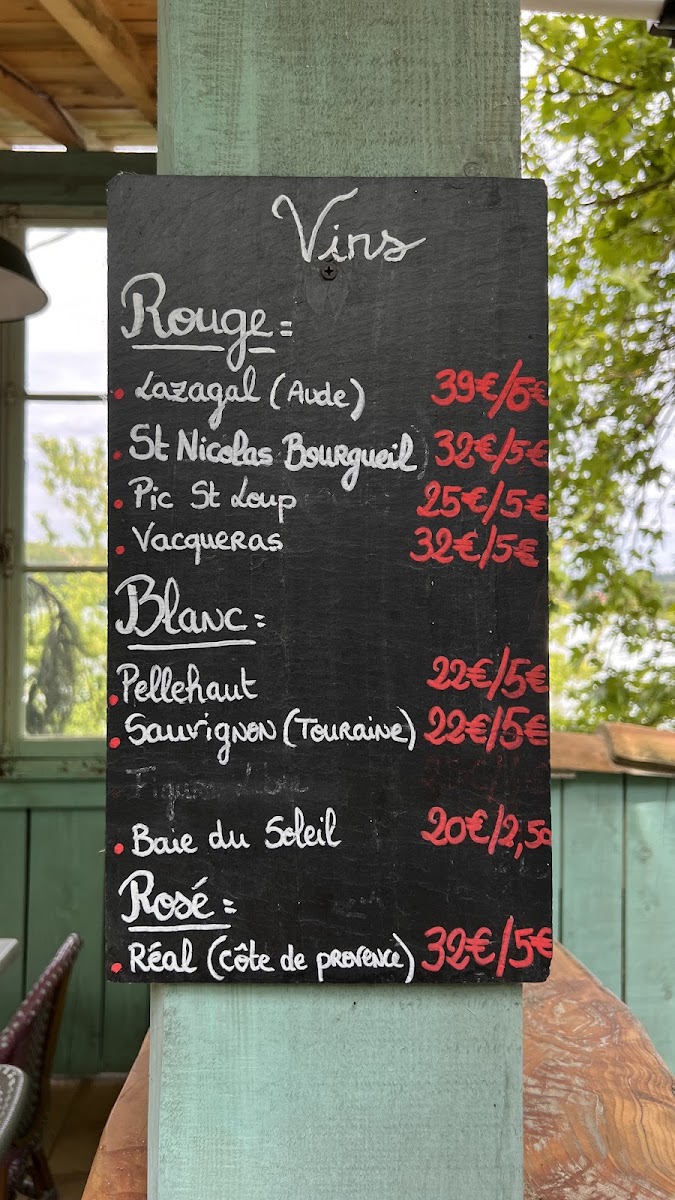 Vins
Rouge :
. Lazagal (Aude) 39€/6€
. St Nicolas Bourgueil 32€/5€
. Pic St Loup 25€/5€
. Vacqueras 32€/5€
Blanc :
. Pellehaut 22€/5€
. Sauvignon (Touraine) 22€/5€
. Baie du Soleil 20€/2,50
Rosé :
. Réal (côte de provence) 32€/5€